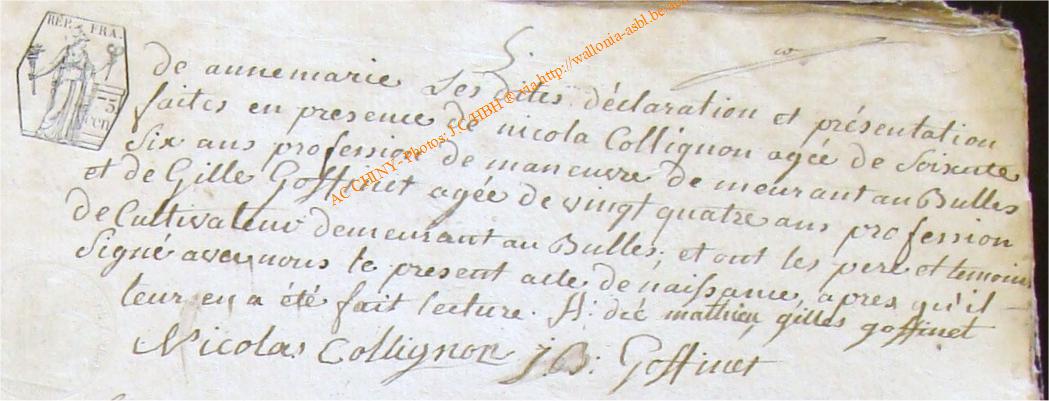 REP. FRA.
5
cen
de annemarie Les dites déclaration et présentation
faites en presence de nicola Collignon agée de Soixente
Six ans profession de maneuvre de meurant au Bulles
et de Gille Goffinet agée de vingt quatre ans profession
de Cultivateur demeurant au Bulles, et ont les pere et temoins
Signé avec nous le present acte de naissance, apres qu'il
leur en a été fait lecture. mathieu gilles goffinet
Nicolas Collignon J. B: Goffinet
ACCHINY - Photos: J.C. HBH ® via http://wallonia-asbl.be